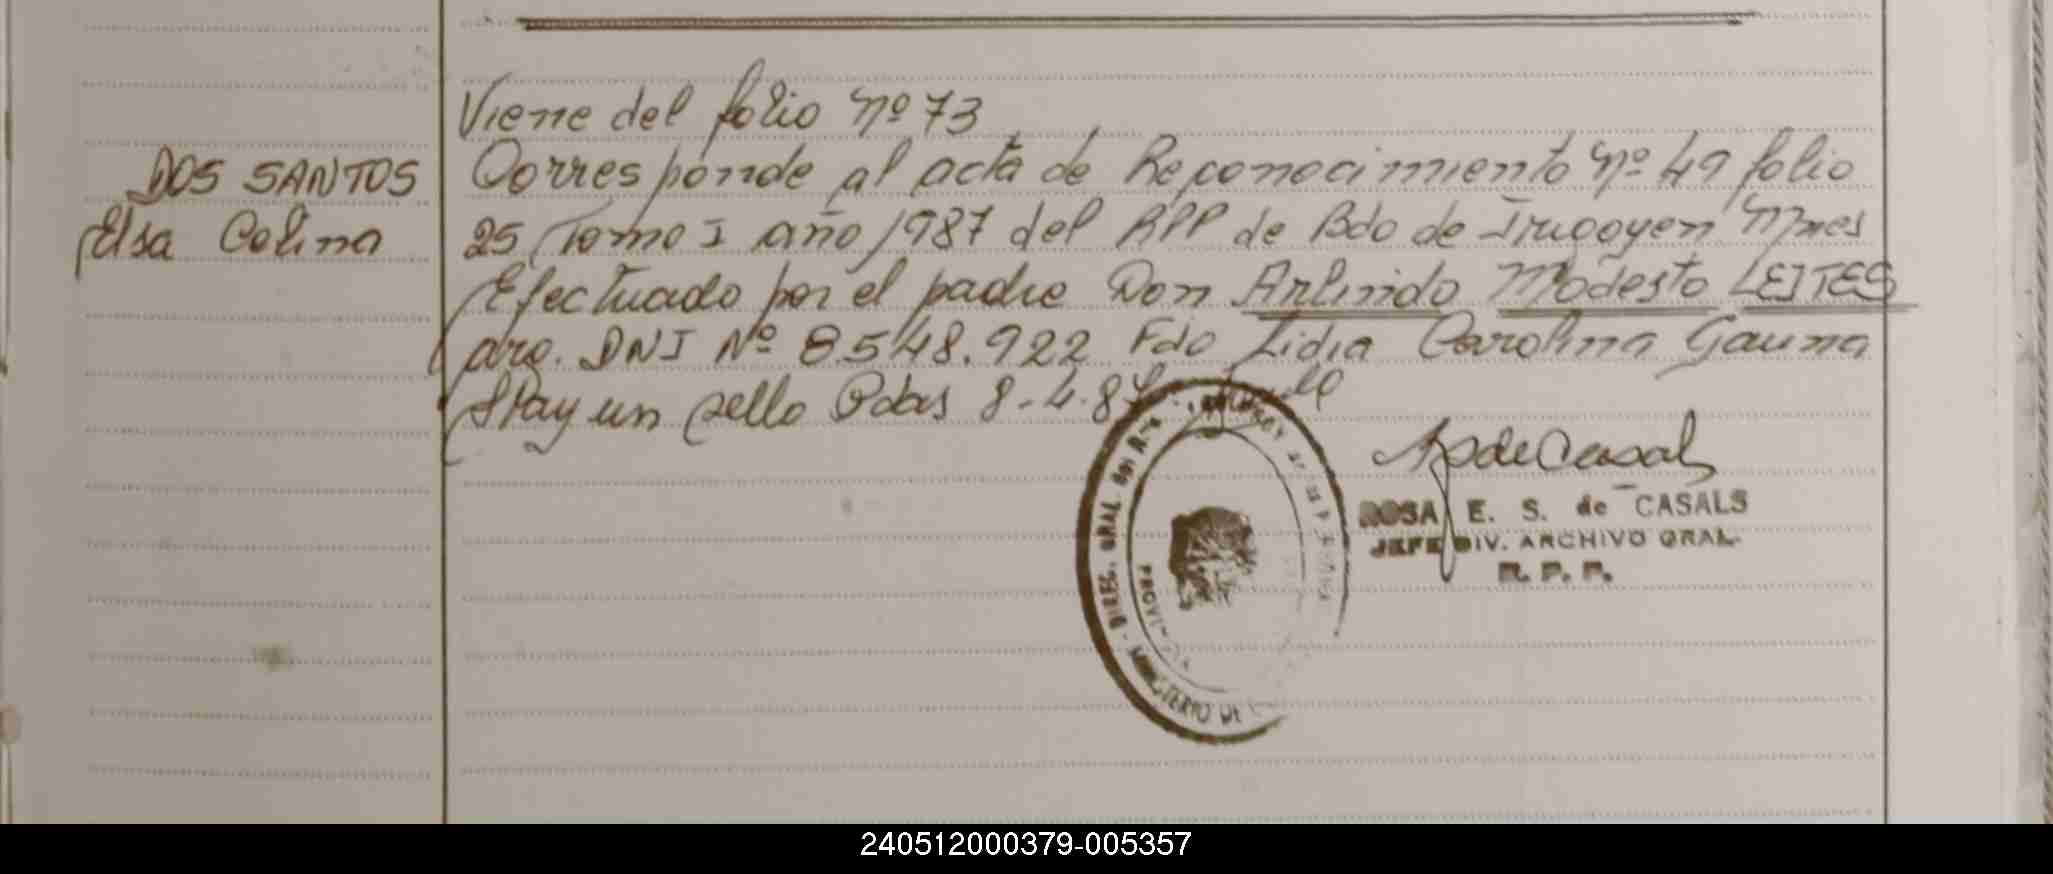 Viene del folio Nº 73
DOS SANTOS
Elsa Celina
Corresponde al acta de Reconocimiento Nº 49 folio
25 Tomo I año 1987 del RPP de Bdo de Irigoyen Mnes
Efectuado por el padre Don Arlindo Modesto LEITES
arg. DNI Nº 8.548.922 Fdo Lidia Carolina Gauna
Hay un sello Pdas 8-4-87
ROSA E. S. de CASALS
JEFE DIV. ARCHIVO GRAL.
R. P. P.
MINISTERIO DE
DIREC. GRAL. del
240512000379-005357